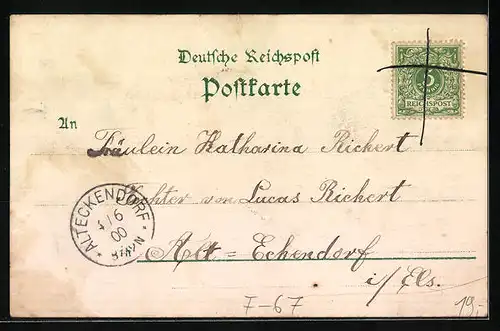 Deutsche Reichspost
Postkarte
5
REICHSPOST
An
Fräulein Katharina Richert
Tochter von Lucas Richert
ALTECKENDORF
6
00
Alt=Eckendorf
i/Els.
7-67
19,-